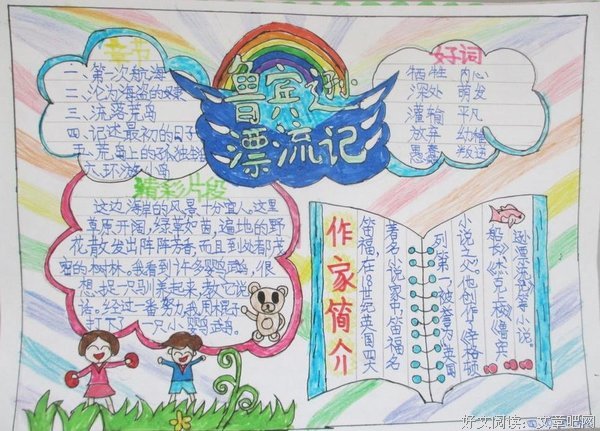 鲁宾逊
漂流记
章节
一、第一次航海
二、沦为海盗的奴隶
三、流落荒岛
四、记述最初的日子
五、荒岛上的
六、环游小岛
好词
牺牲 内心
深处 萌发
灌输 平凡
放弃 幼稚
愚蠢 叛逆
精彩片段
这边海岸的风景十分宜人。这里
草原开阔,绿草如茵,遍地的野
花散发出阵阵芳香,而且到处都是茂
密的树林。我看到许多鹦鹉,很
想捉一只驯养起来,教它说
话。经过一番努力,我用棍子
打下了一只小鹦鹉。
作家简介
笛福,在18世纪英国四大
著名小说家中笛福名
列第一,被誉为英国
小说之父。他创作《辛格顿
船长》《杰克上校》《鲁宾
逊漂流记》等小说。
好文阅读:文章吧网